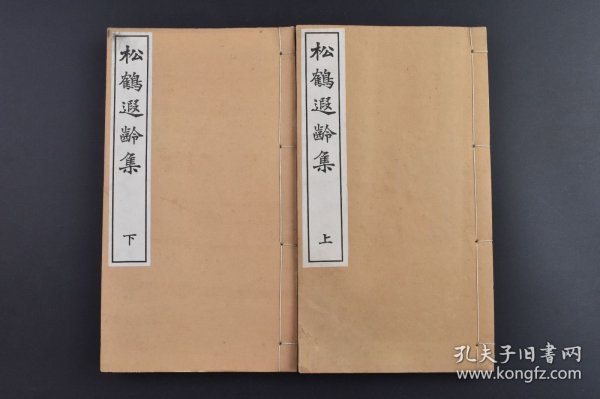 松鶴遐齡集
上
松鶴遐齡集
下
孔夫子旧書网
www.kongfz.com